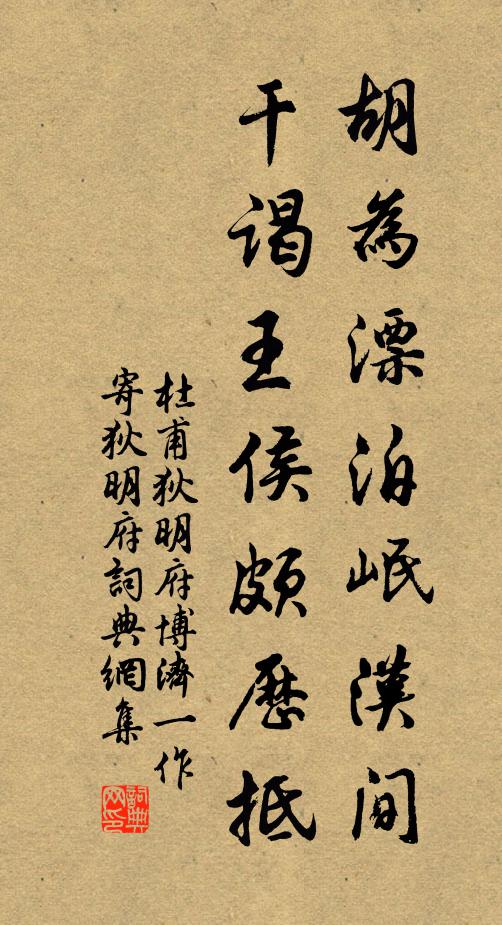 胡為漂泊岷漢間
干謁王侯頗歷抵
杜甫狄明府博濟一作
寄狄明府詞典網集
詞典網印